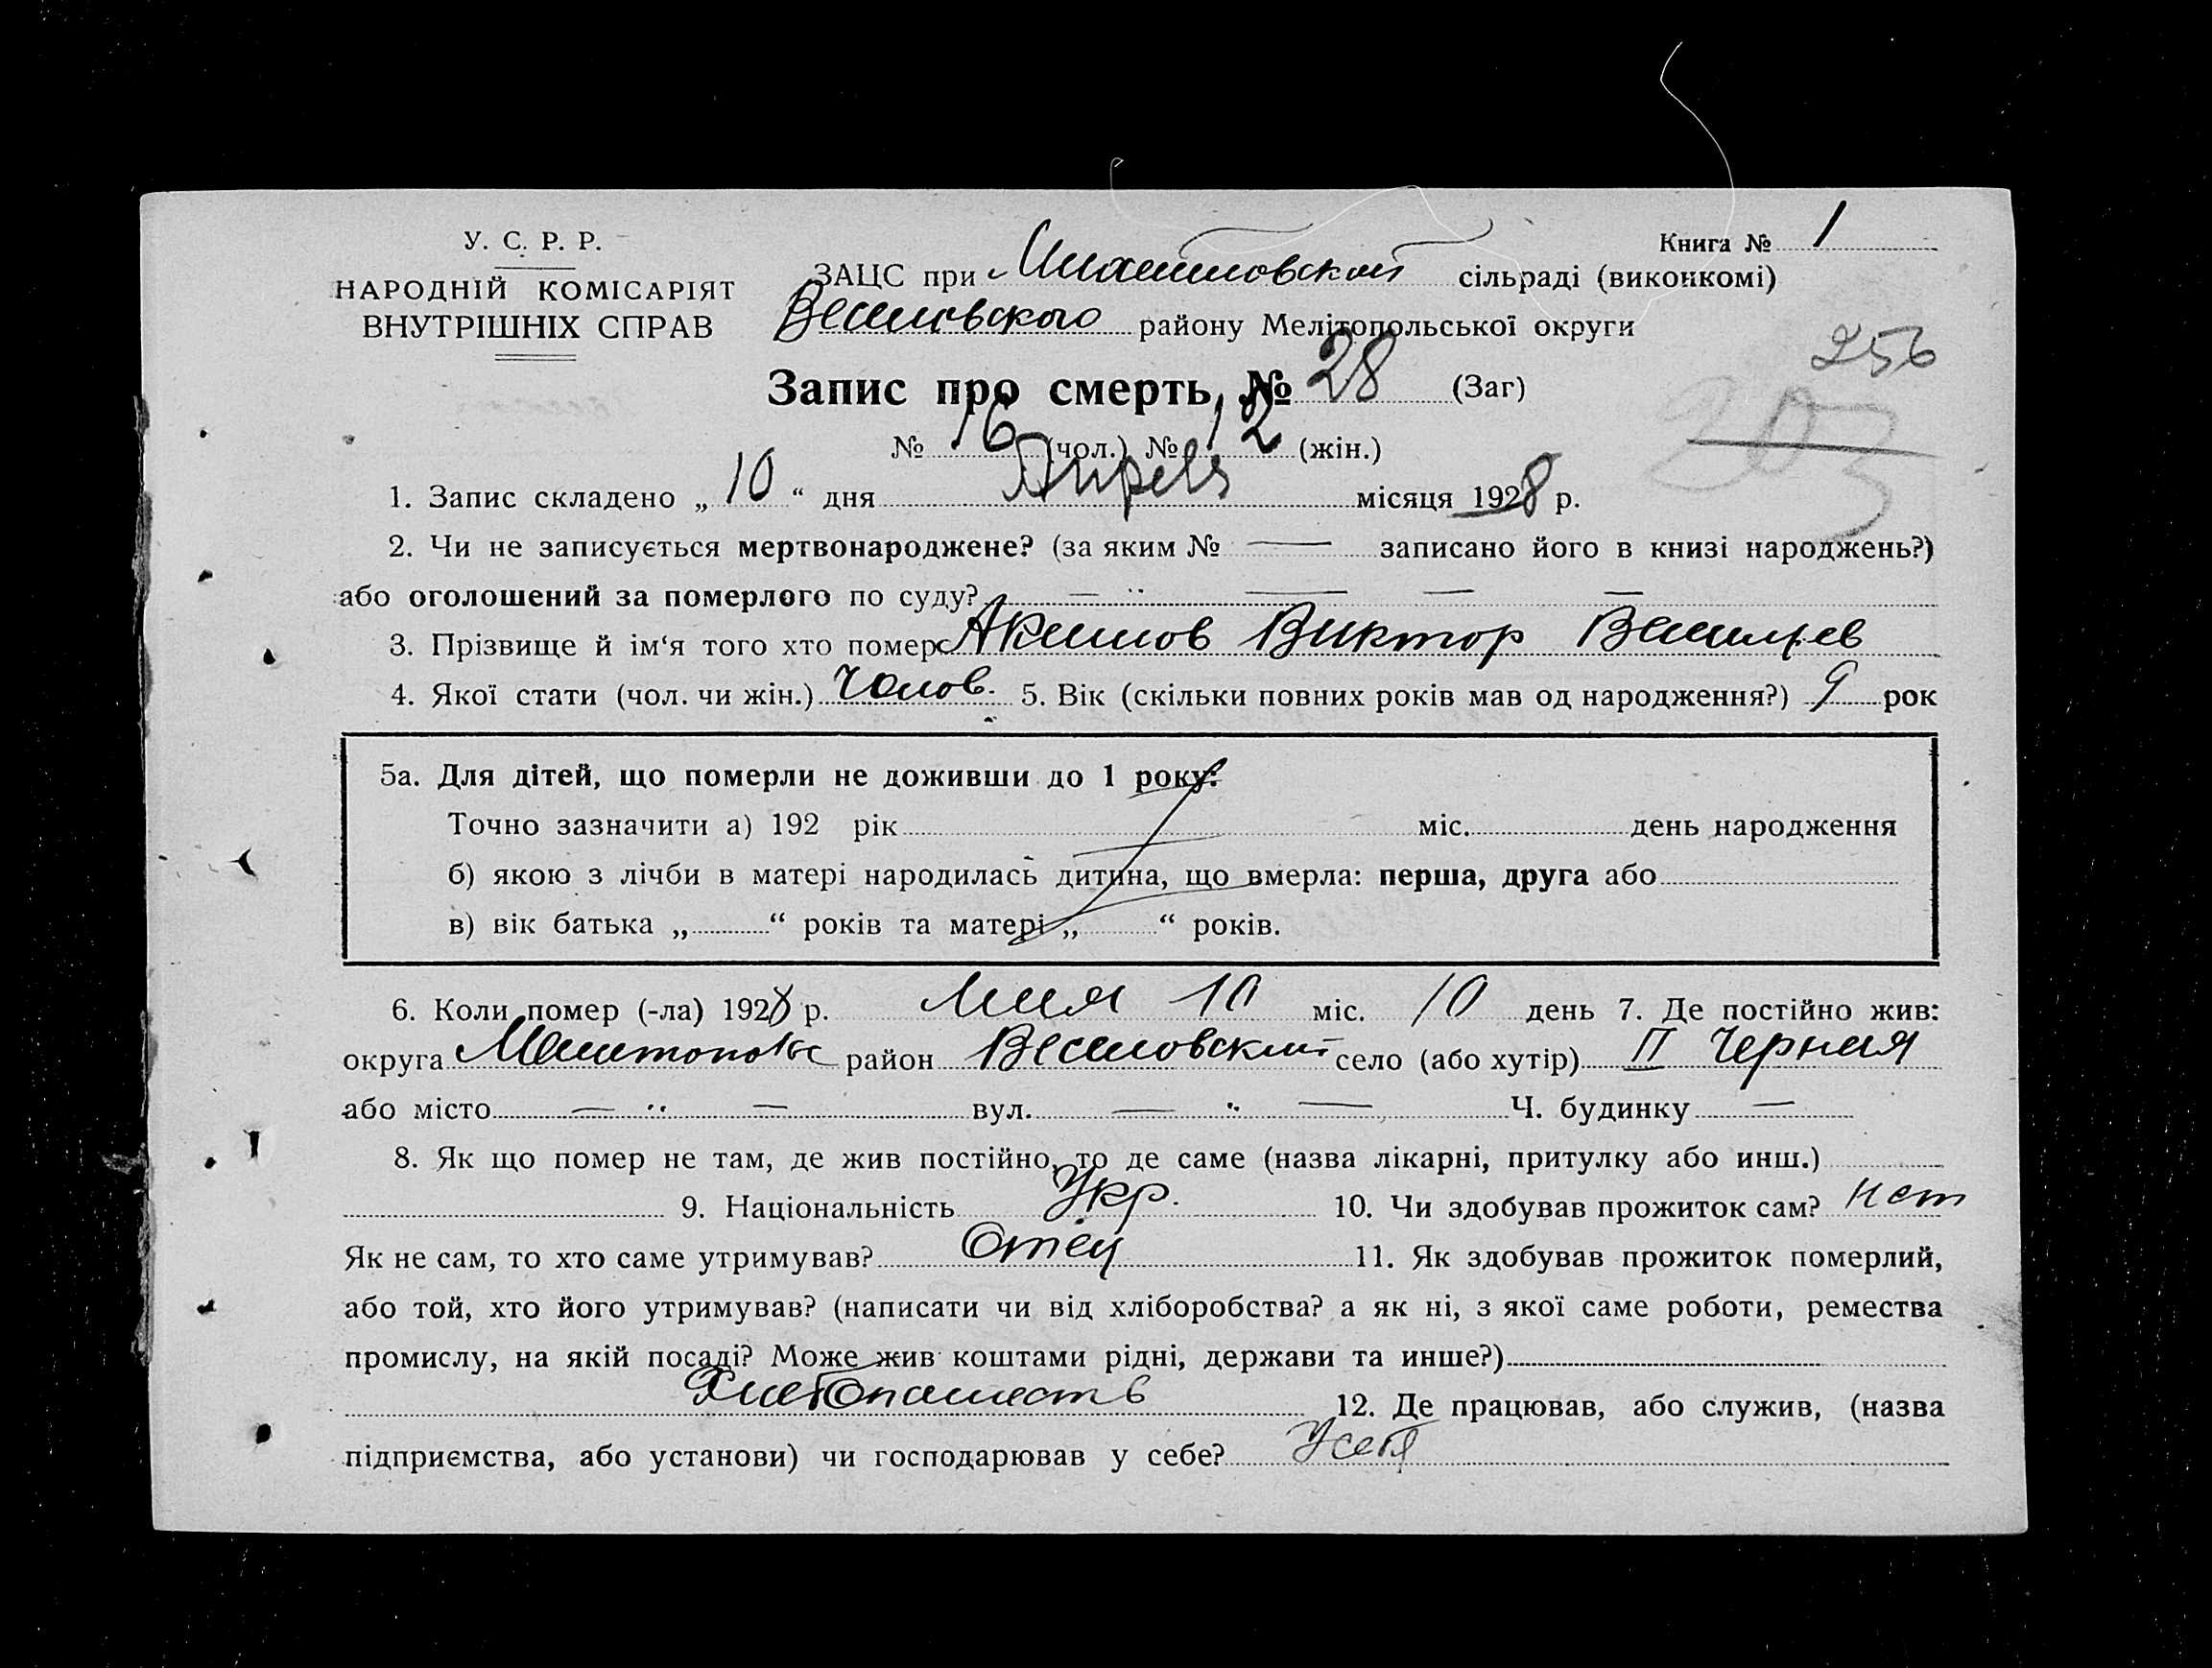 У. С. Р. Р.
НАРОДНІЙ КОМІСАРІЯТ
ВНУТРІШНІХ СПРАВ
Книга № 1
ЗАЦС при сільраді (виконкомі)
Веселовского району Мелітопольської округи
256
203
Запис про смерть, № 28 (Заг)
№ 16 (чол.) № 12 (жін.)
1. Запис складено „ 10 “ дня Апреля місяця 1928 р.
2. Чи не записується мертвонароджене? (за яким № — записано його в книзі народжень?)
або оголошений за померлого по суду? — " — — —
3. Прізвище й ім‘я того хто помер Акимов Виктор Васильев
4. Якої стати (чол. чи жін.) Чолов. 5. Вік (скільки повних років мав од народження?) 9 рок
5а. Для дітей, що померли не доживши до 1 року:
Точно зазначити а) 192 рік міс. день народження
б) якою з лічби в матері народилась дитина, що вмерла: перша, друга або
в) вік батька „ “ років та матері „ “ років.
6. Коли помер (-ла) 1928 р. 10 міс. 10 день 7. Де постійно жив:
округа район Веселовский село (або хутір) II Черная
або місто — " — вул. — " — Ч. будинку —
8. Як що помер не там, де жив постійно, то де саме (назва лікарні, притулку або инш.)
9. Національність Укр. 10. Чи здобував прожиток сам? нет
Як не сам, то хто саме утримував? Отец 11. Як здобував прожиток померлий,
або той, хто його утримував? (написати чи від хліборобства? а як ні, з якої саме роботи, ремества
промислу, на якій посаді? Може жив коштами рідні, держави та инше?)
Хлебопашеств 12. Де працював, або служив, (назва
підприємства, або установи) чи господарював у себе? У себя